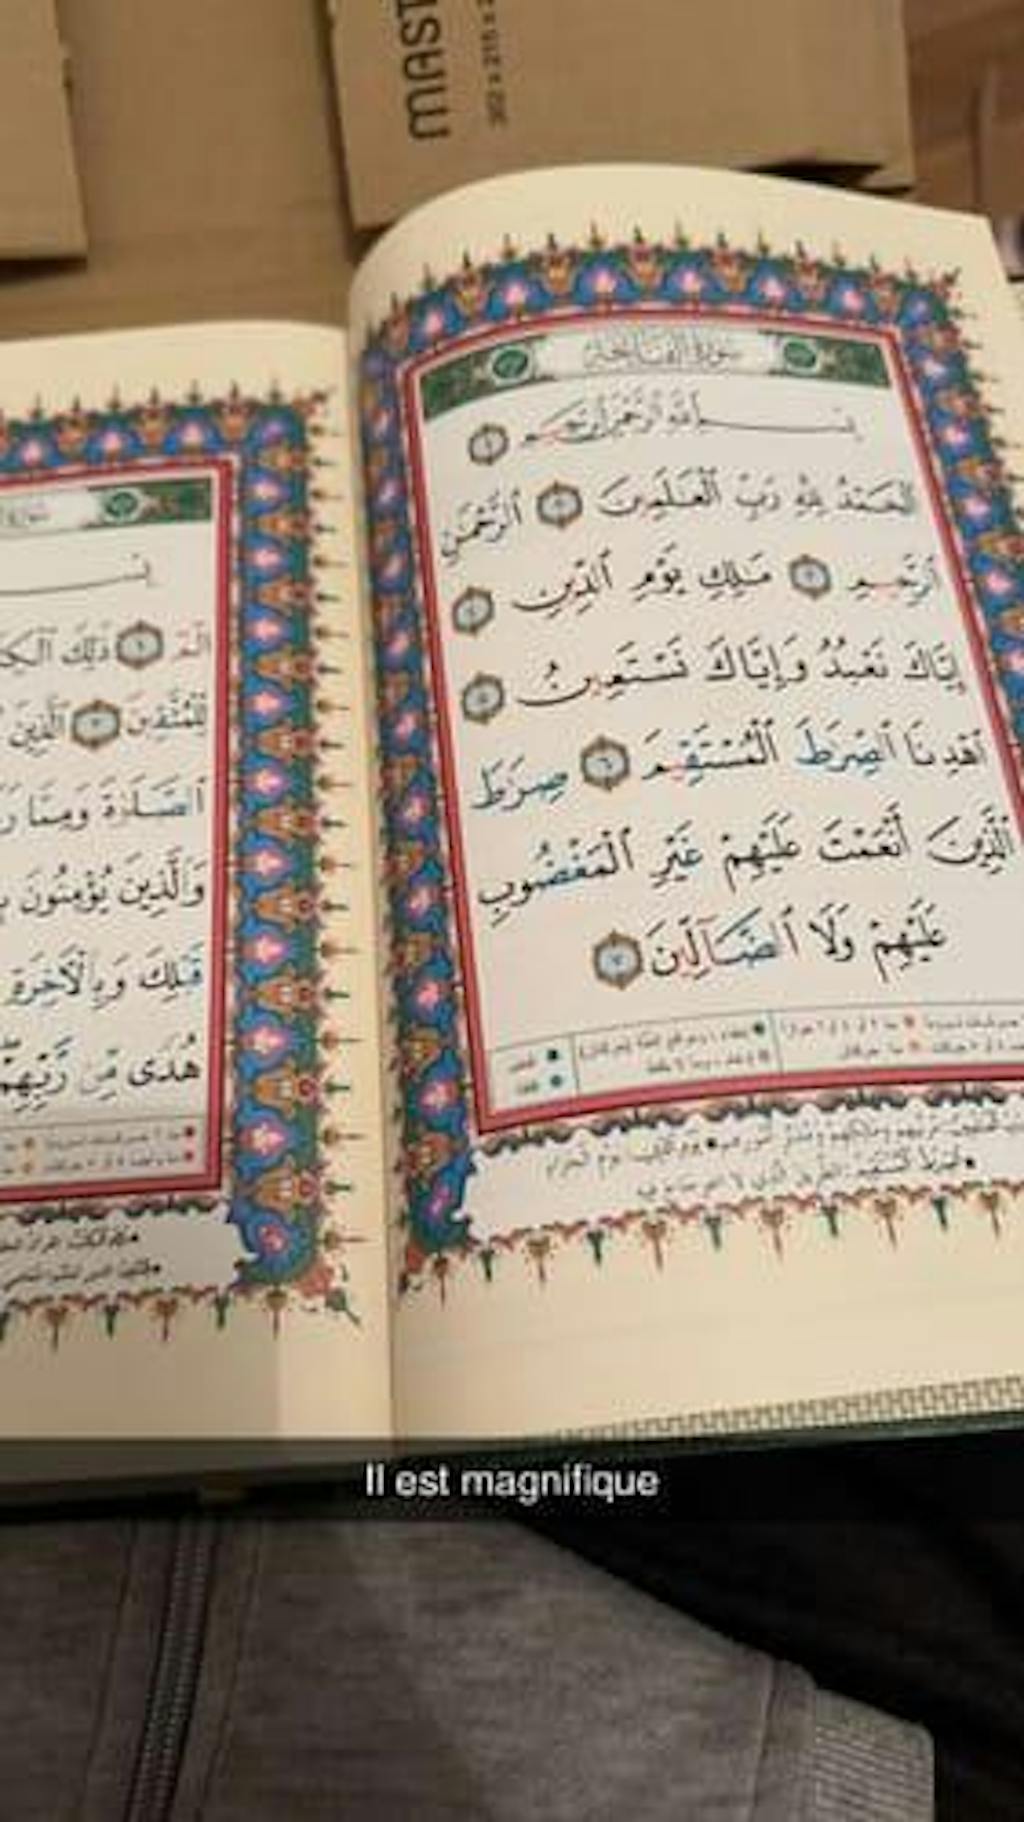 MAST
سورة الفاتحة
بسم الله الرحمن الرحيم ١
ٱلْحَمْدُ لِلَّهِ رَبِّ ٱلْعَـٰلَمِينَ ٢ ٱلرَّحْمَـٰنِ
ٱلرَّحِيمِ ٣ مَـٰلِكِ يَوْمِ ٱلدِّينِ ٤
إِيَّاكَ نَعْبُدُ وَإِيَّاكَ نَسْتَعِينُ ٥
ٱهْدِنَا ٱلصِّرَٰطَ ٱلْمُسْتَقِيمَ ٦ صِرَٰطَ
ٱلَّذِينَ أَنْعَمْتَ عَلَيْهِمْ غَيْرِ ٱلْمَغْضُوبِ
عَلَيْهِمْ وَلَا ٱلضَّآلِّينَ ٧
سورة
بس
الٓمٓ ١ ذَٰلِكَ
لِّلْمُتَّقِينَ ٢ ٱلَّذِينَ
ٱلصَّلَوٰةَ وَمِمَّا
وَٱلَّذِينَ يُؤْمِنُونَ
قَبْلِكَ وَبِٱلْـَٔاخِرَةِ
هُدًى مِّن رَّبِّهِمْ
Il est magnifique